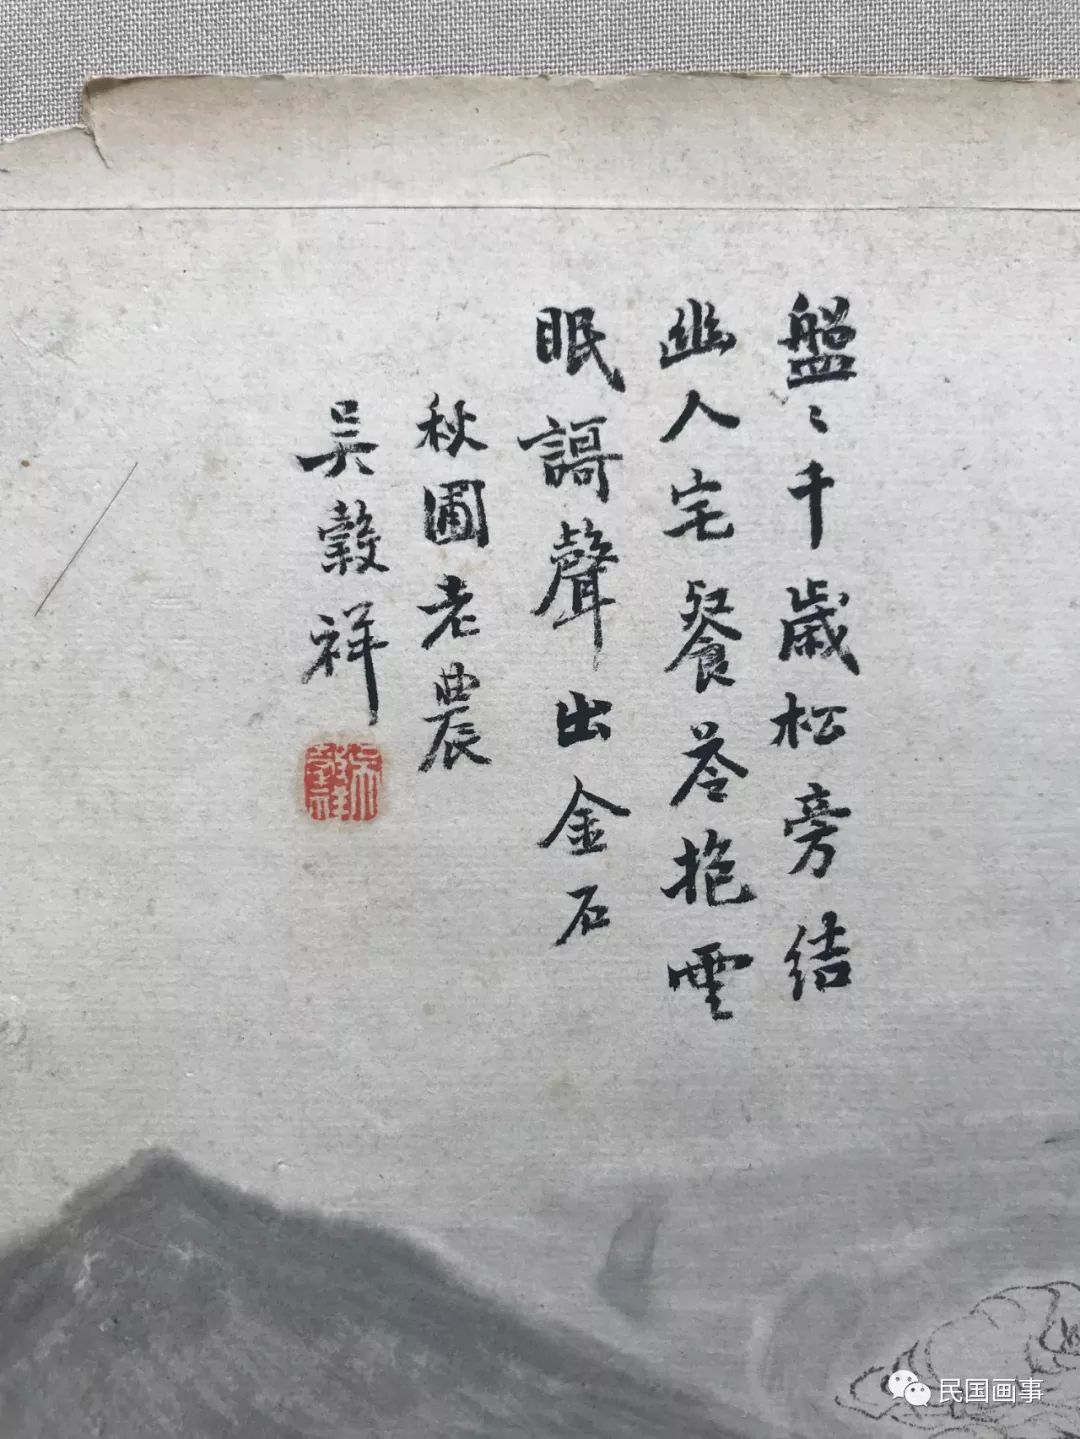 盤〻千歲松旁結
幽人宅餐苓抱雲
眠謌聲出金石
秋圃老農
吳榖祥
民国画事